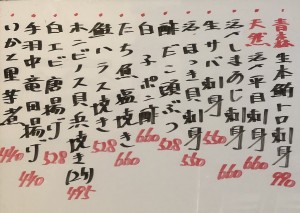 青森 生本鮪トロ刺身 990
天然 活〆平目刺身 660
活〆しまあじ刺身 660
生サバ刺身 550
活ほっき貝刺身 528
酢だこ頭ぶつ 660
白子ポン酢 660
たち魚塩焼き 660
鮭ハラス焼き 528
ホンビノス貝浜焼き(2ケ) 495
白エビ唐揚げ 528
手羽中竜田揚げ 440
いかと里芋煮 440